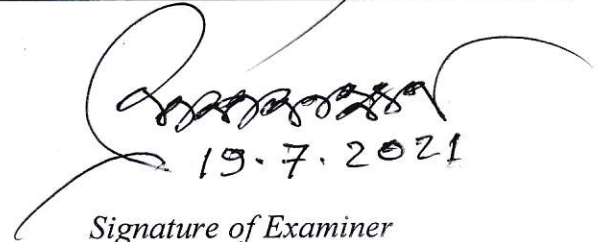 19.7.2021
Signature of Examiner